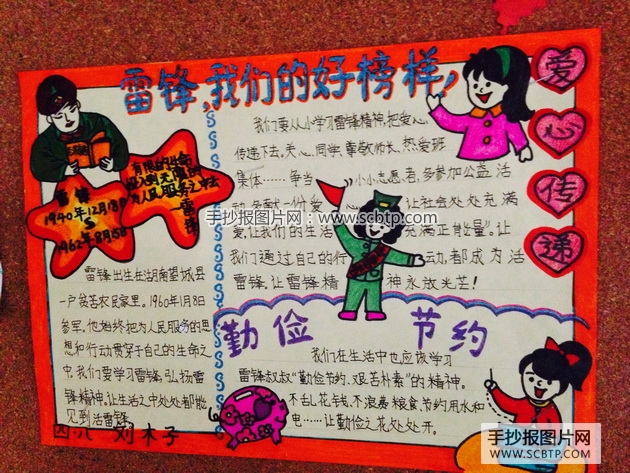 雷锋,我们的好榜样!
爱
心
传
递
雷锋
1940年12月18日
1962年8月5日
有限的生命
投入到无限的
为人民服务之中去
——雷锋
我们要从小学习雷锋精神,把爱心
传递下去。关心同学,尊敬师长,热爱班
集体……争当小小志愿者,多参加公益活
动,多献一份爱心,让社会处处充满
爱,让我们的生活充满正能量”。让
我们通过自己的行动,都成为活
雷锋,让雷锋精神永放光芒!
手抄报图片网:www.scbtp.com
雷锋出生在湖南望城县
一户贫苦农民家里。1960年1月8日
参军,他始终把为人民服务的思
想和行动贯穿于自己的生命之
中。我们要学习雷锋,弘扬雷
锋精神,让生活之中处处都能
见到活雷锋。
四.八 刘木子
勤俭 节约
我们在生活中也应该学习
雷锋叔叔“勤俭节约、艰苦朴素”的精神。
不乱花钱,不浪费粮食,节约用水和
电……让勤俭之花处处开。
手抄报图片网
WWW.SCBTP.COM